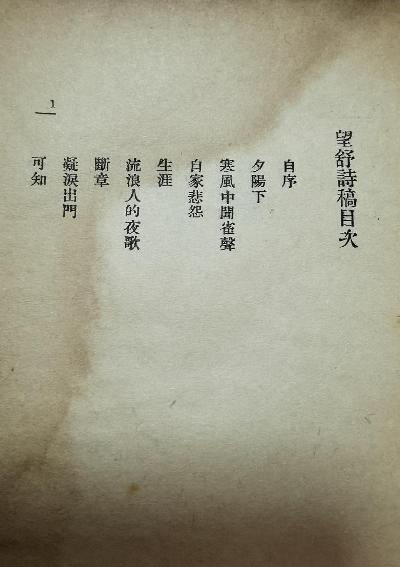 望舒詩稿目次
自序
夕陽下
寒風中聞雀聲
自家悲怨
生涯
流浪人的夜歌
斷章
凝淚出門
可知
1